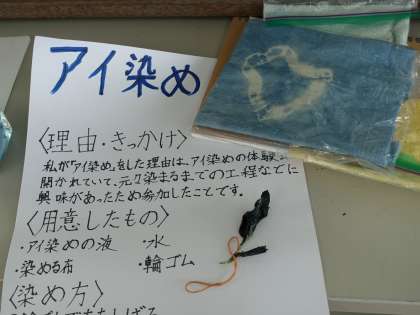 アイ染め
〈理由・きっかけ〉
私が「アイ染め」をした理由は、アイ染めの体験
開かれていて、元々染まるまでの工程などに
興味があったため参加したことです。
〈用意したもの〉
・アイ染めの液 ・水
・染める布 ・輪ゴム
〈染め方〉